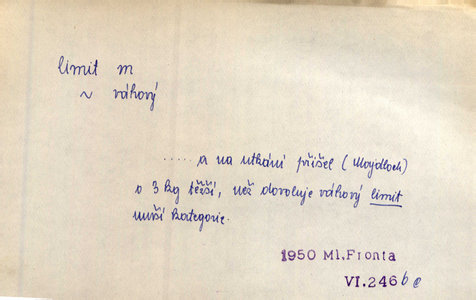 limit m
~ váhový
..... a na utkání přišel (Maydloch)
o 3 kg těžší, než dovoluje váhový limit
nižší kategorie.
1950 Ml.Fronta
VI.246 b e